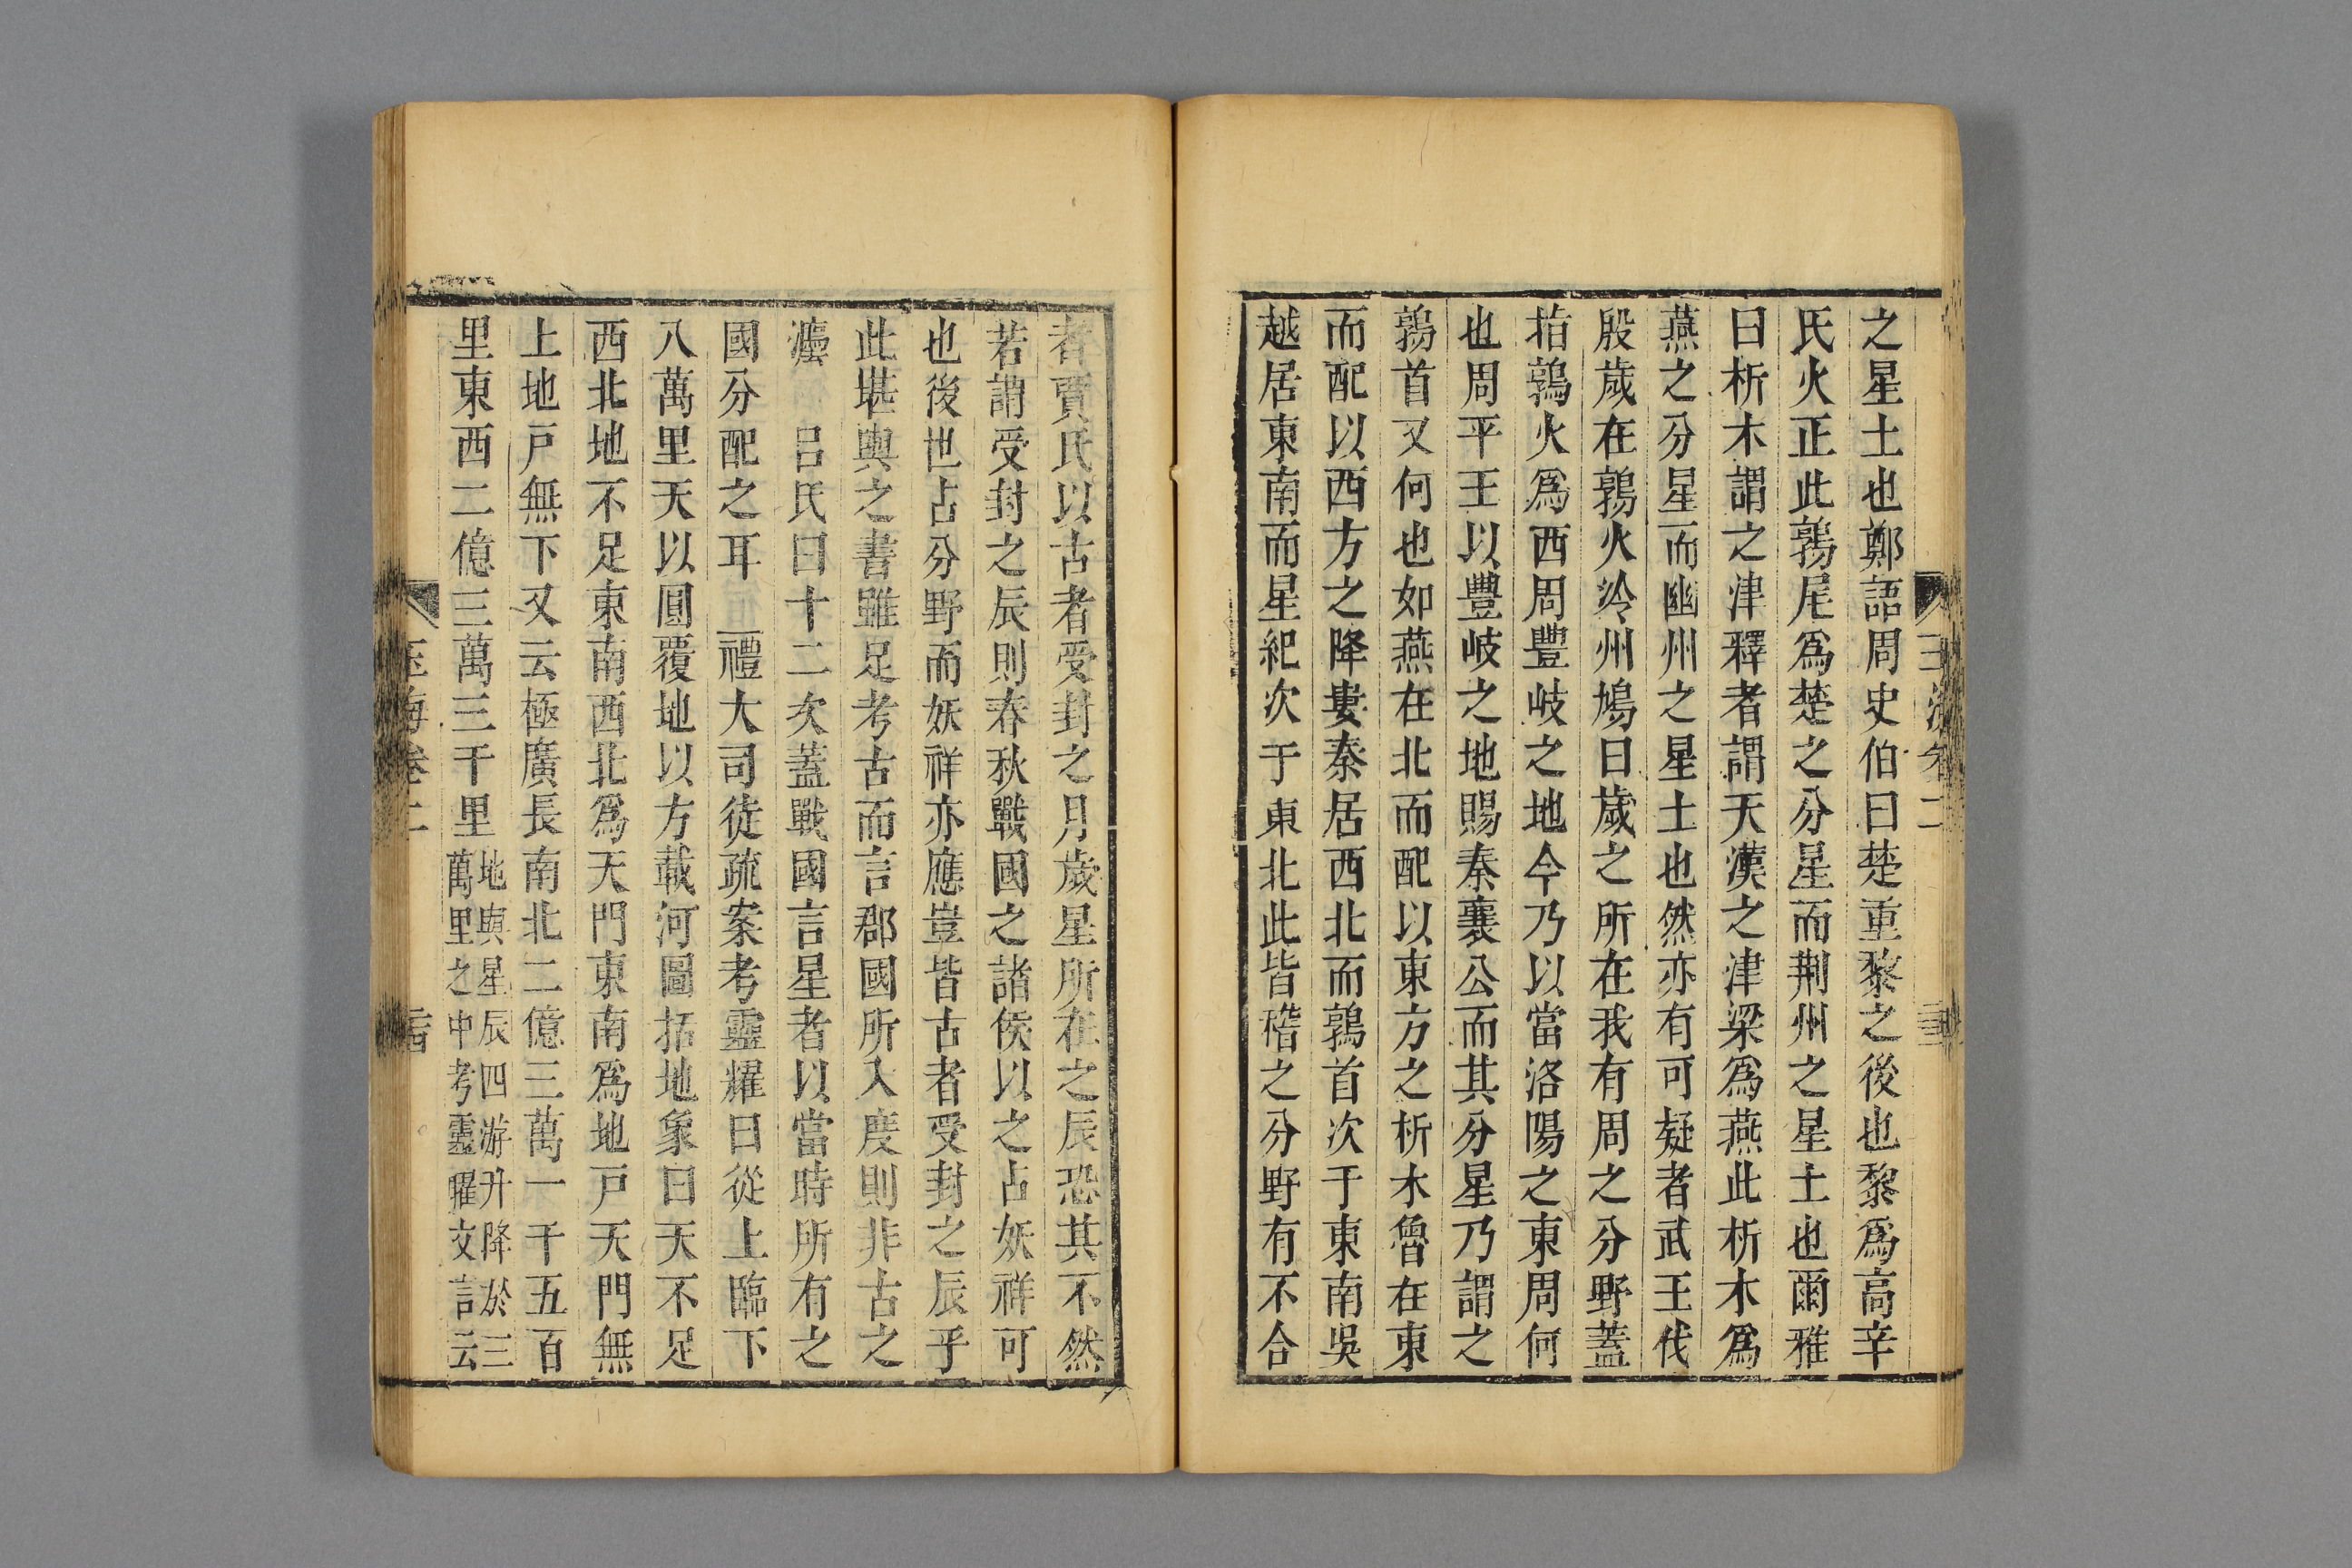 之星土也鄭語周史伯曰楚重黎之後也黎爲高辛
氏火正此鶉尾爲楚之分星而荆州之星土也爾雅
曰析木謂之津釋者謂天漢之津梁爲燕此析木爲
燕之分星而幽州之星土也然亦有可疑者武王伐
殷歲在鶉火泠州鳩曰歲之所在我有周之分野蓋
指鶉火爲西周豐岐之地今乃以當洛陽之東周何
也周平王以豐岐之地賜秦襄公而其分星乃謂之
鶉首又何也如燕在北而配以東方之析木魯在東
而配以西方之降婁秦居西北而鶉首次于東南吳
越居東南而星紀次于東北此皆稽之分野有不合
者賈氏以古者受封之月歲星所在之辰恐其不然
若謂受封之辰則春秋戰國之諸侯以之占妖祥可
也後世占分野而妖祥亦應豈皆古者受封之辰乎
此堪輿之書雖足考古而言郡國所入度則非古之
灋 呂氏曰十二次蓋戰國言星者以當時所有之
國分配之耳 禮大司徒疏案考靈耀曰從上臨下
八萬里天以圓覆地以方載河圖括地象曰天不足
西北地不足東南西北爲天門東南爲地戶天門無
上地戶無下又云極廣長南北二億三萬一千五百
里東西二億三萬三千里地與星辰四游升降於三
萬里之中考靈耀文言云
玉海卷二